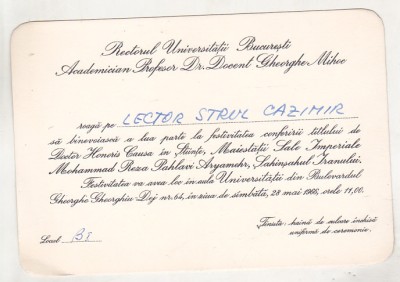 Rectorul Universității București
Academician Profesor Dr. Docent Gheorghe Mihoc
roagă pe LECTOR STRUL CAZIMIR
să binevoiască a lua parte la festivitatea conferirii titlului de
Doctor Honoris Causa în Științe, Maiestății Sale Imperiale
Mohammad Reza Pahlavi Aryamehr, Șahinșahul Iranului.
Festivitatea va avea loc în aula Universității din Bulevardul
Gheorghe Gheorghiu Dej nr. 64, în ziua de sîmbătă, 28 mai 1966, orele 11,00.
Ținuta: haină de culoare închisă
uniformă de ceremonie.
Locul